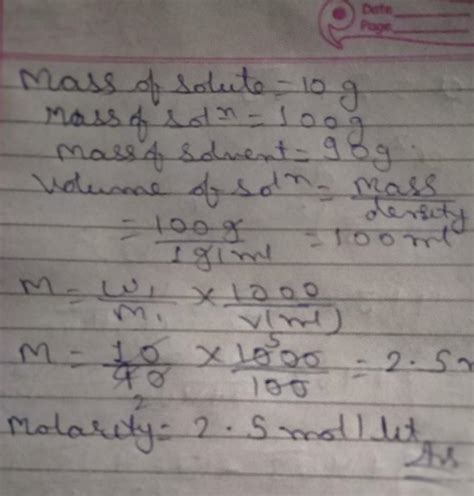 Date
Page
Mass of solute = 10 g
Mass of solⁿ = 100g
Mass of solvent = 90g.
Volume of solⁿ = Mass / density
= 100 g / 1 g/ml = 100 ml
M = W₁ / M₁ × 1000 / V(ml)
M = 10 / 40 × 1000 / 100 = 2.5 M
5
2
Molarity = 2.5 mol/lit
Ans